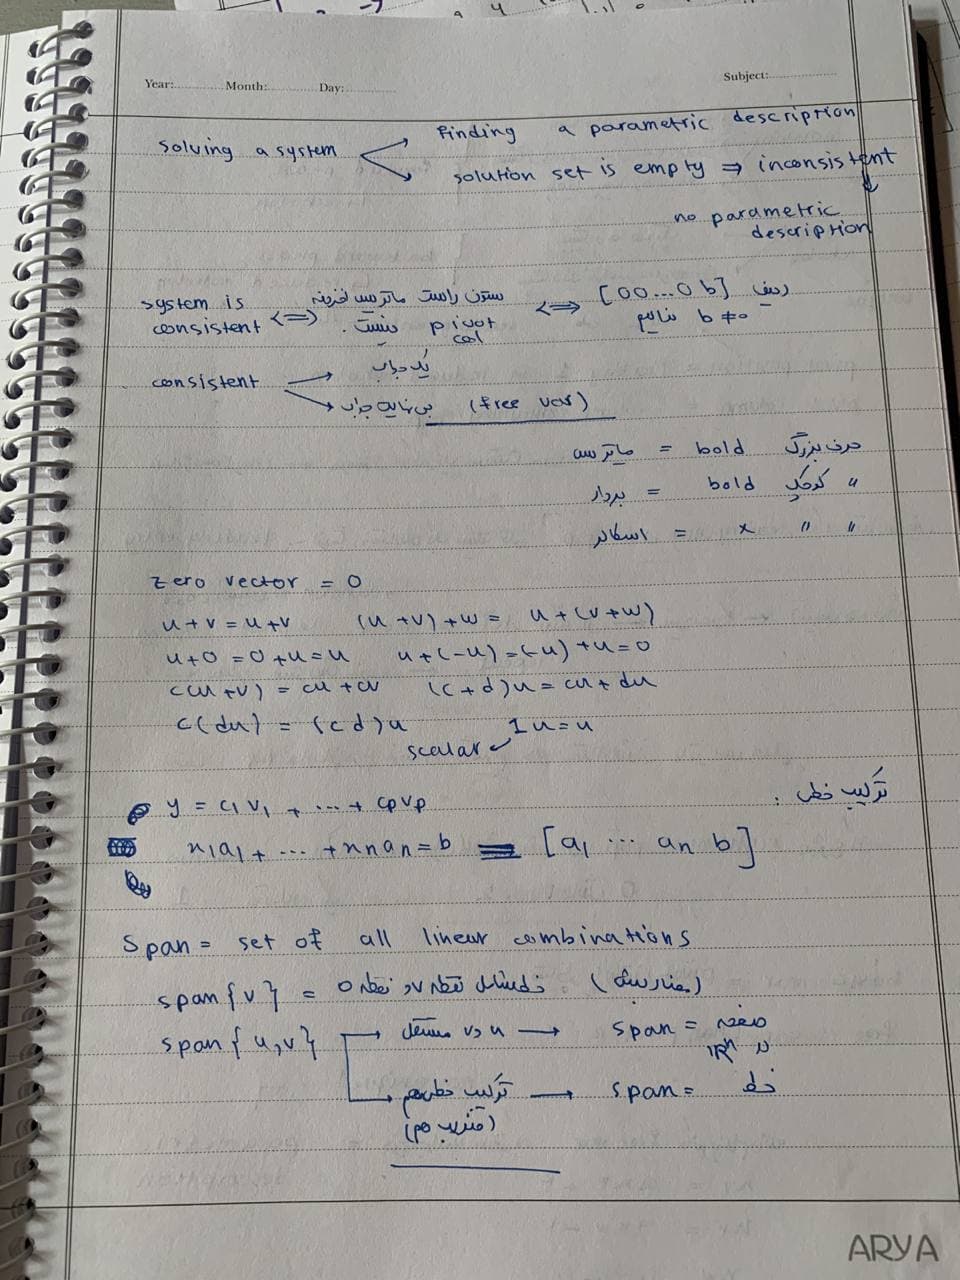 Year: Month: Day: Subject:
solving a system
finding a parametric description
solution set is empty ⇒ inconsistent
no parametric
description
system is consistent ⟺ ستون راست ماتریس افزوده pivot نیست. ⟺ ردیف [0 0 ... 0 b] نداریم b≠0
consistent → یک جواب
→ بی نهایت جواب (free var)
حرف بزرگ bold = ماتریس
〃 کوچک bold = بردار
〃 〃 x = اسکالر
zero vector = 0
u+v = u+v (u+v)+w = u+(v+w)
u+0 = 0+u = u u+(-u) = (-u)+u = 0
c(u+v) = cu+cv (c+d)u = cu+du
c(du) = (cd)u 1u = u
scalar
ترکیب خطی :
y = c1v1 + ... + cpvp
x1a1 + ... + xnan = b = [a1 ... an b]
Span = set of all linear combinations
span{v} = خط شامل نقطه v و نقطه 0
span{u,v} → u و v مستقل → span = صفحه
در ℝⁿ
→ ترکیب خطی هم → span = خط
(ضریب هم)
ARYA